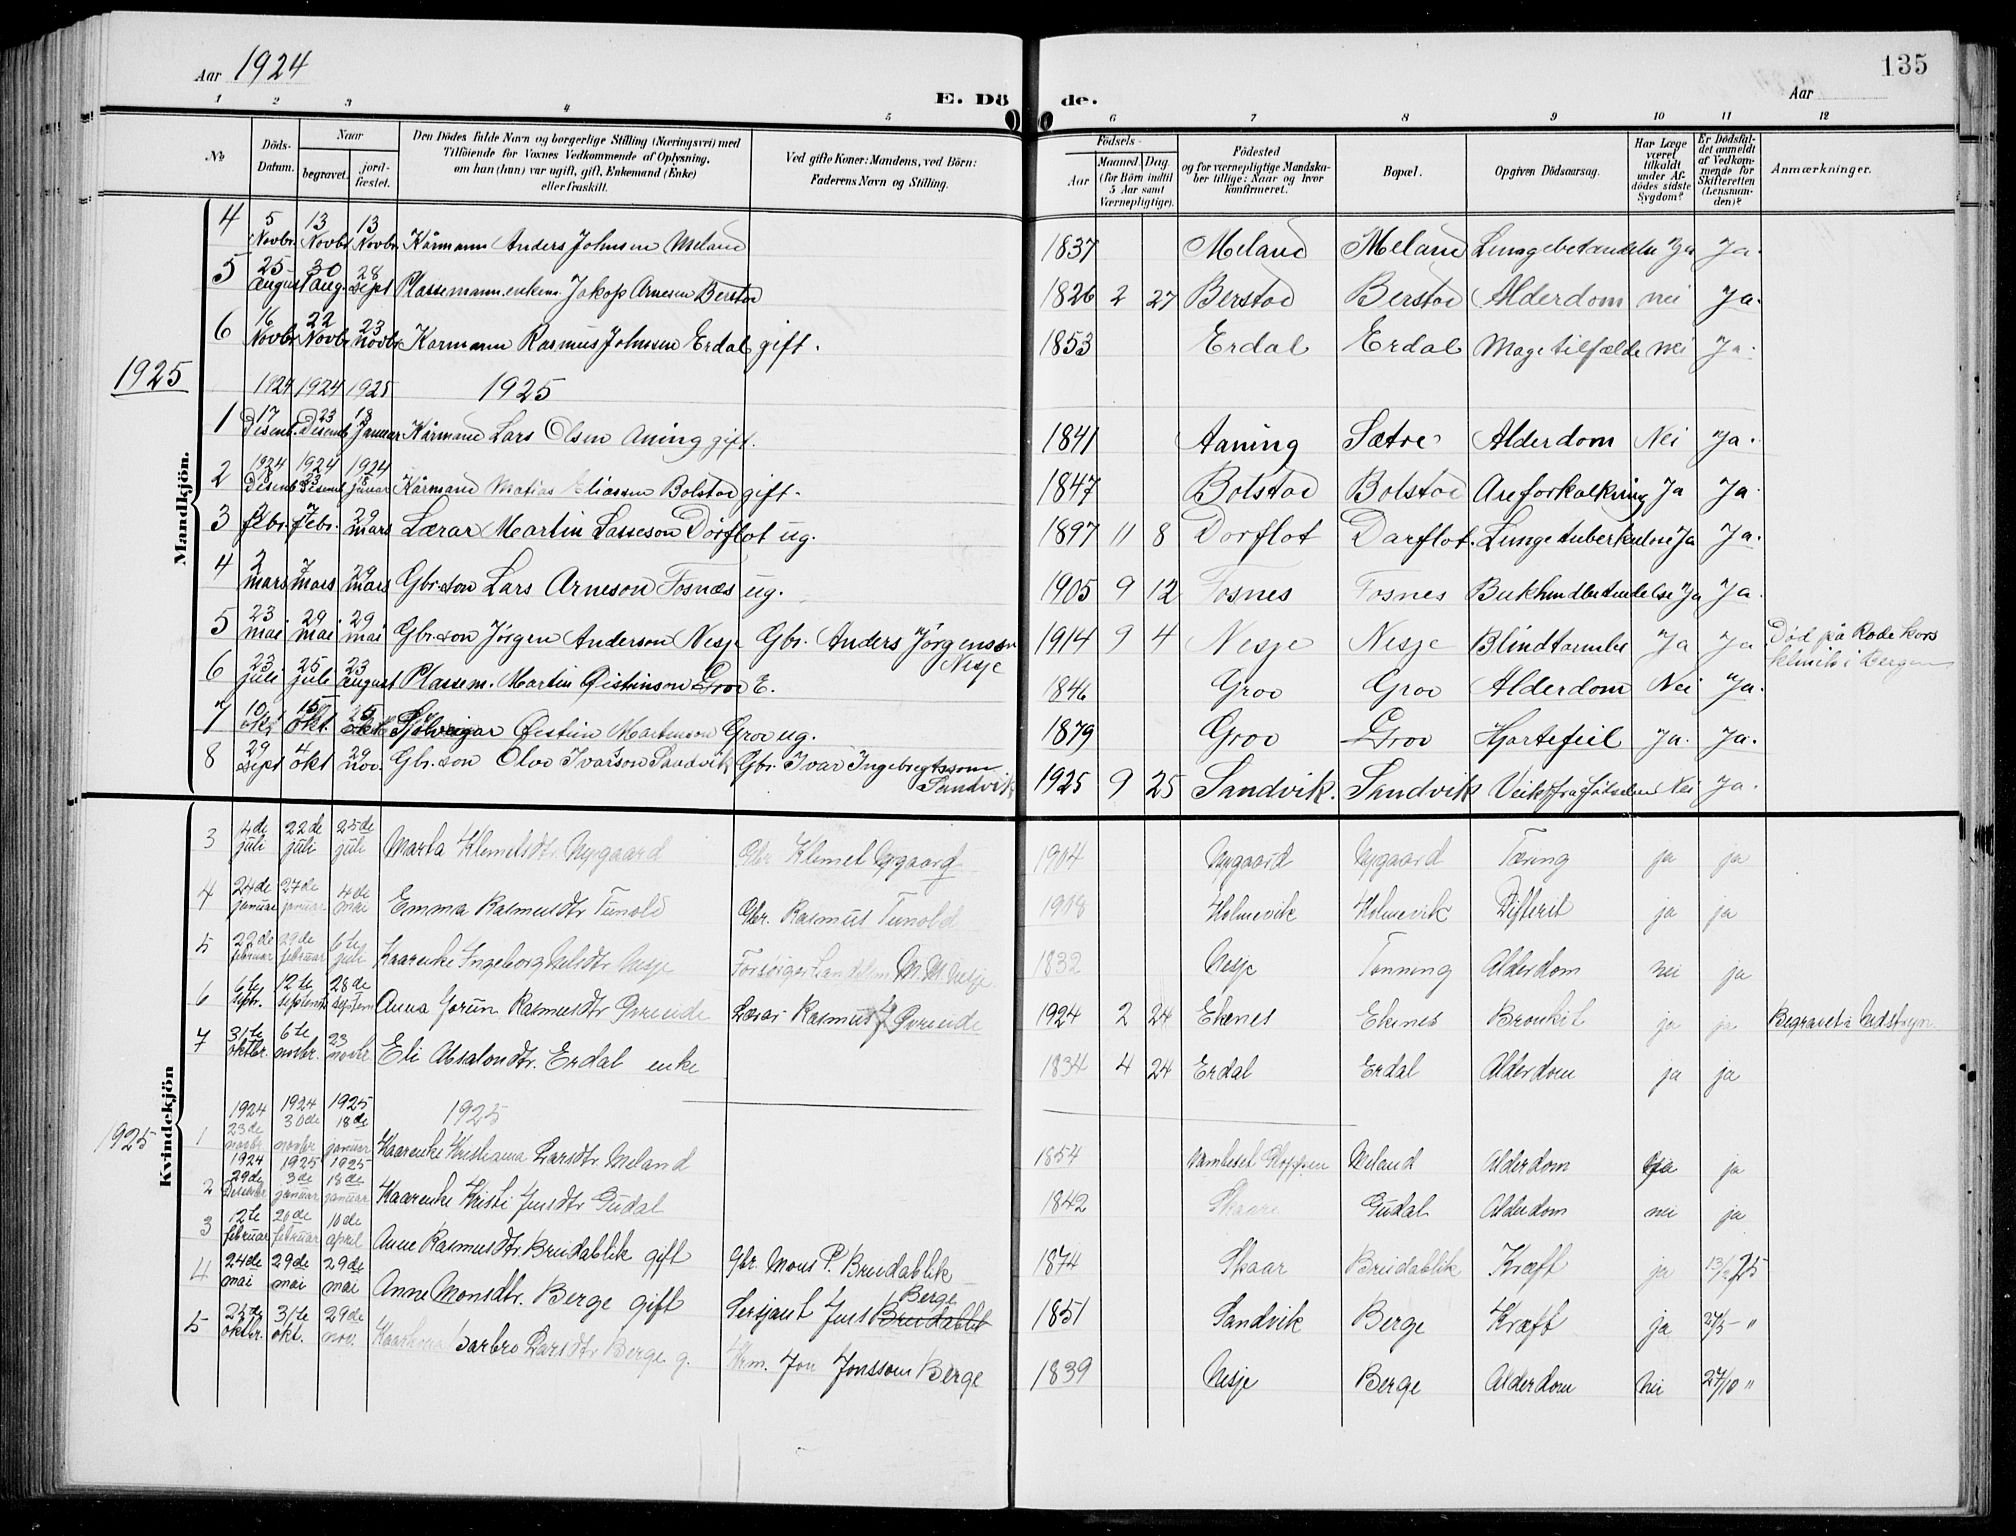 Aar 1924
135
Aar
E. Dö de.
1 2 3 4 5 6 7 8 9 10 11 12
No
Döds-Datum.
Naar
begravet.
jord-fæstet.
Den Dödes fulde Navn og borgerlige Stilling (Næringsvei) med
Tilföiende for Voxnes Vedkommende af Oplysning,
om hun (han) var ugift, gift, Enkemand (Enke)
eller fraskilt.
Ved gifte Koner: Mandens, ved Börn:
Faderens Navn og Stilling.
Födsels-
Aar
Maaned. Dag.
(for Börn indtil
5 Aar samt
Værnepligtige).
Födested
og for værnepligtige Mandska-
ber tillige: Naar og hvor
konfirmeret.
Bopæl.
Opgiven Dödsaarsag.
Har Læge
været
tilkaldt
under Af-
dödes sidste
Sygdom?
Er Dödsfal-
det anmeldt
af Vedkom-
mende for
Skifteretten
(Lensman-
den)?
Anmærkninger.
Mandkjön.
4 5 Novbr. 13 Novbr 13 Novbr. Kårmann Anders Johnsen Meland 1837 Meland Meland Lungebetændelse Ja Ja.
5 25 august 30 aug. 28 Sept Plassemann enkem. Jakop Arnesen Berstad 1826 2 27 Berstad Berstad Alderdom nei Ja.
6 16 Novbr 22 Novbr 23 Novbr. Karmann Rasmus Johnsen Erdal gift. 1853 Erdal Erdal Mage tilfælde nei Ja.
1925
1924 1924 1925 1925
1 17 Desemb. 23 Desemb 18 Januar Kårmand Lars Olsen Aning gift. 1841 Aaning Sætre Alderdom Nei Ja.
1924 1924 1924
2 18 Desemb 23 Desemb 18 Januar Kårmand Matias Eliassen Bolstad gift. 1847 Bolstad Bolstad Areforkalkning Ja Ja.
3 febr. 7 febr. 29 mars Lærar Martin Lasseson Dorflot ug. 1897 11 8 Dorflot Darflot. Lungetuberkulose Ja Ja.
4 2 mars 7 mars 29 mars Gbr.son Lars Arneson Fosnæs ug. 1905 9 12 Fosnes Fosnes Bukhindbetendelse Ja Ja.
5 23 mai 29 mai 29 mai Gbr.son Jørgen Anderson Nesje Gbr. Anders Jørgensson Nesje 1914 9 4 Nesje Nesje Blindtarmbe Ja Ja Død på Røde Kors klinik i Bergen
6 23 juli 25 juli 23 august Plassem. Martin Øistinson Grov E. 1846 Grov Grov Alderdom Nei Ja.
7 10 okt 15 okt. 25 okt Øistin Martinson Grov ug. 1879 Grov Grov Hjartefeil Ja. Ja.
8 29 sept 4 okt 29 nov. Gbr.son Olav Ivarson Sandvik Gbr. Ivar Ingebregtsson Sandvik 1925 9 25 Sandvik. Sandvik Veik fra fötselen Nei Ja.
Kvindekjön
3 14de juli 22de juli 25de juli Marta Klemetsdtr. Nygaard Gbr. Klemet Nygaard 1904 Nygaard Nygaard Tæring ja ja
4 24de januar 27de januar 4de mai Emma Rasmusdtr Tunold Gbr. Rasmus Tunold 1918 Holmevik Holmevik Difterit ja ja
5 22de februar 29de februar 6te juli Kaarenke Ingeborg Nilsdtr Nesje Forsørger M. M. Nesje. 1832 Nesje Tenning Alderdom nei ja
6 6te septr. 12te septemb 28de septem Anna Gorun Rasmusdtr Gvreide Lærar Rasmus J Gvreide 1924 2 24 Ekenes Ekenes Bronkit ja ja Begravet i
7 31te oktbr. 6te novbr. 23 novbr Eli Absalondtr. Erdal enke 1834 4 24 Erdal Erdal Alderdom ja ja
1925
1924 1924 1925 1925
1 23de novbr. 30de novbr 18de januar Kaarenke Kristianna Larsdtr Meland 1854 Vamteset Gloppen Meland Alderdom ja ja
1924 1925 1925
2 29de Desembr 3de januar 18de januar Kaarenke Kristi Jensdtr Gudal 1842 Skaare Gudal Alderdom nei ja
3 12te februar 20de februar 10de april Anne Rasmusdtr Breidablik gift Gbr. Mons P. Breidablik 1874 Skaar Breidablik Kræft ja 13/2 25
4 24de mai 29de mai 29de mai Anne Monsdtr. Berge gift Sersjant Jens Breidablik Berge 1851 Sandvik Berge Kræft ja 27/5 - "
5 25de oktbr. 31te okt. 29de nov. Barbro Larsdtr Berge g. Krm. Jon Jonsson Berge 1839 Nesje Berge Alderdom nei 27/10 "